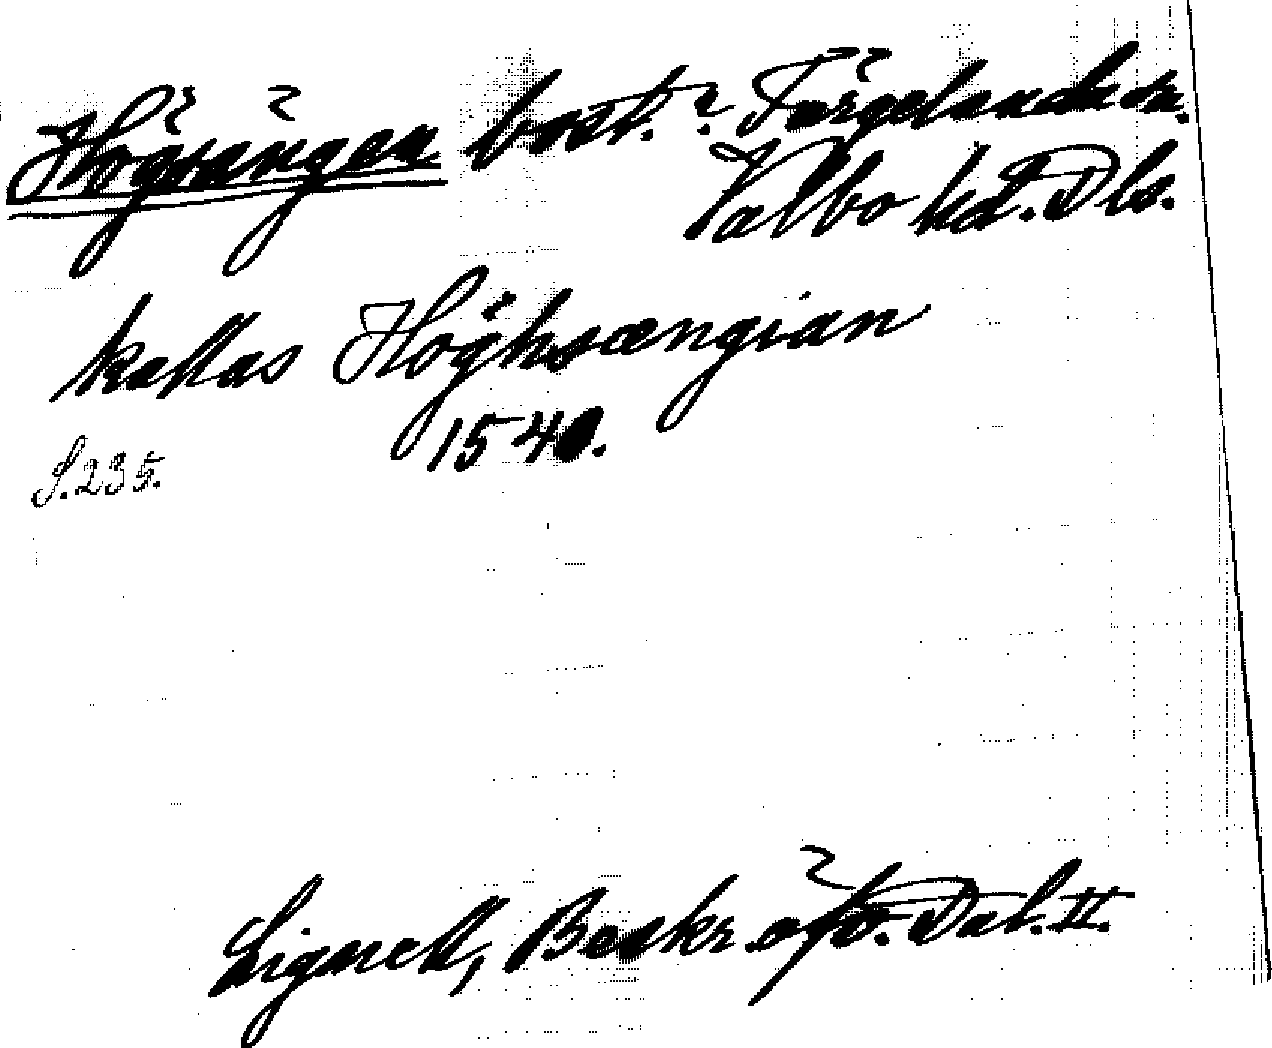 Högsängen bost.? Färgelanda sn.
Valbo hd. Dls.
kallas Höghsængian
1540.
S. 235.
Lignell, Beskr. öfv. Dal. II.